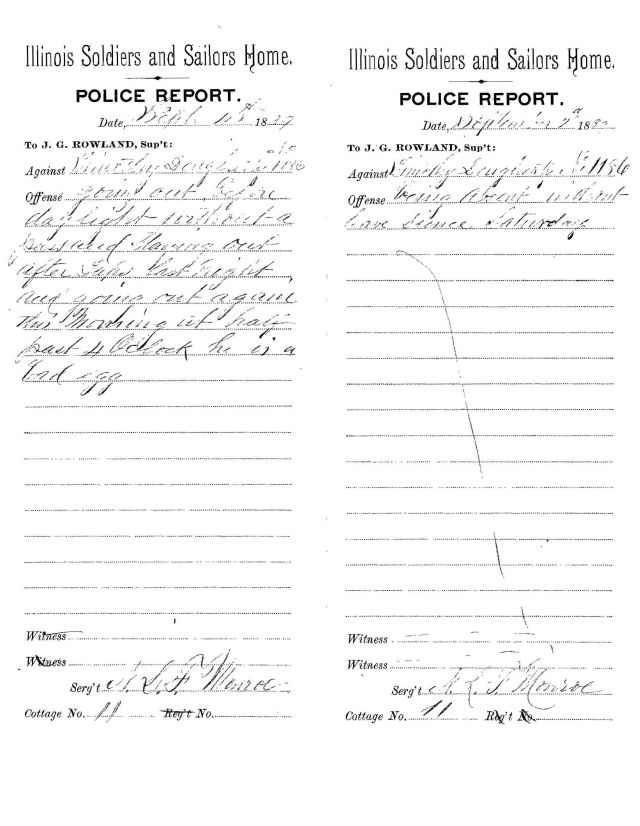 Illinois Soldiers and Sailors Home.
POLICE REPORT.
Date, Sept 18
To J. G. ROWLAND, Sup't:
Against Timothy 1186
Offense going out before
day light without a
pass and Staying out
after Taps last night
and going out again
this Morning at half
past 4 Oclock he is a
bad egg
Witness
Witness
Serg't N. L. F. Monroe
Cottage No. 11 Reg't No.
Illinois Soldiers and Sailors Home.
POLICE REPORT.
Date, September 18
To J. G. ROWLAND, Sup't:
Against Timothy 1186
Offense being absent without
leave sience Saturday
Witness
Witness
Serg't N. L. F. Monroe
Cottage No. 11 Reg't No.